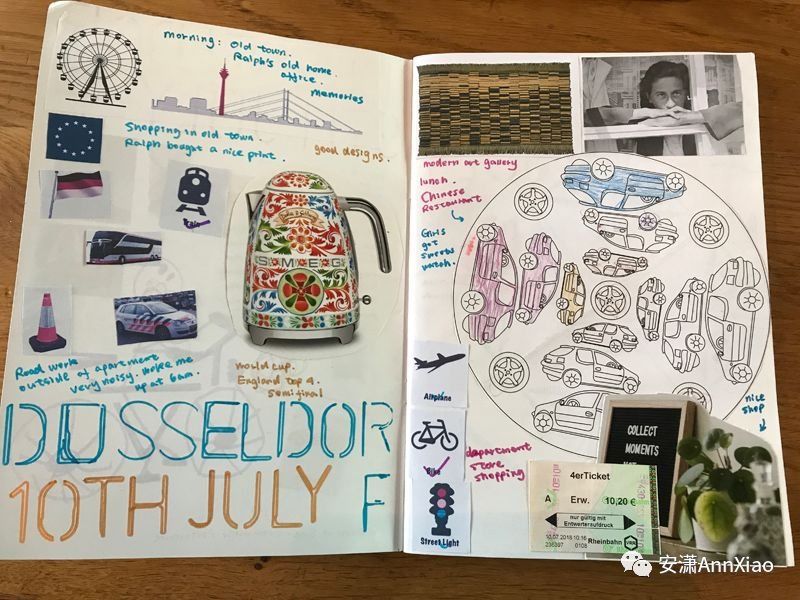 morning: old town.
Ralph's old home.
office.
memories
Shopping in old town.
Ralph bought a nice print.
good designs.
SMEG
Road work
outside of apartment
very noisy. woke me
up at 6am.
world cup.
England top 4.
semifinal
DÜSSELDOR
F
10TH JULY
modern art gallery
lunch.
Chinese
Restaurant
Girls
got
sweets
watch.
Airplane
Bike
department
store
shopping
Street Light
nice
shop
COLLECT
MOMENTS
4erTicket
A Erw. 10,20 €
nur gültig mit
Entwerteraufdruck
10.07.2018 10:16
236397 0108 Rheinbahn
安潇AnnXiao